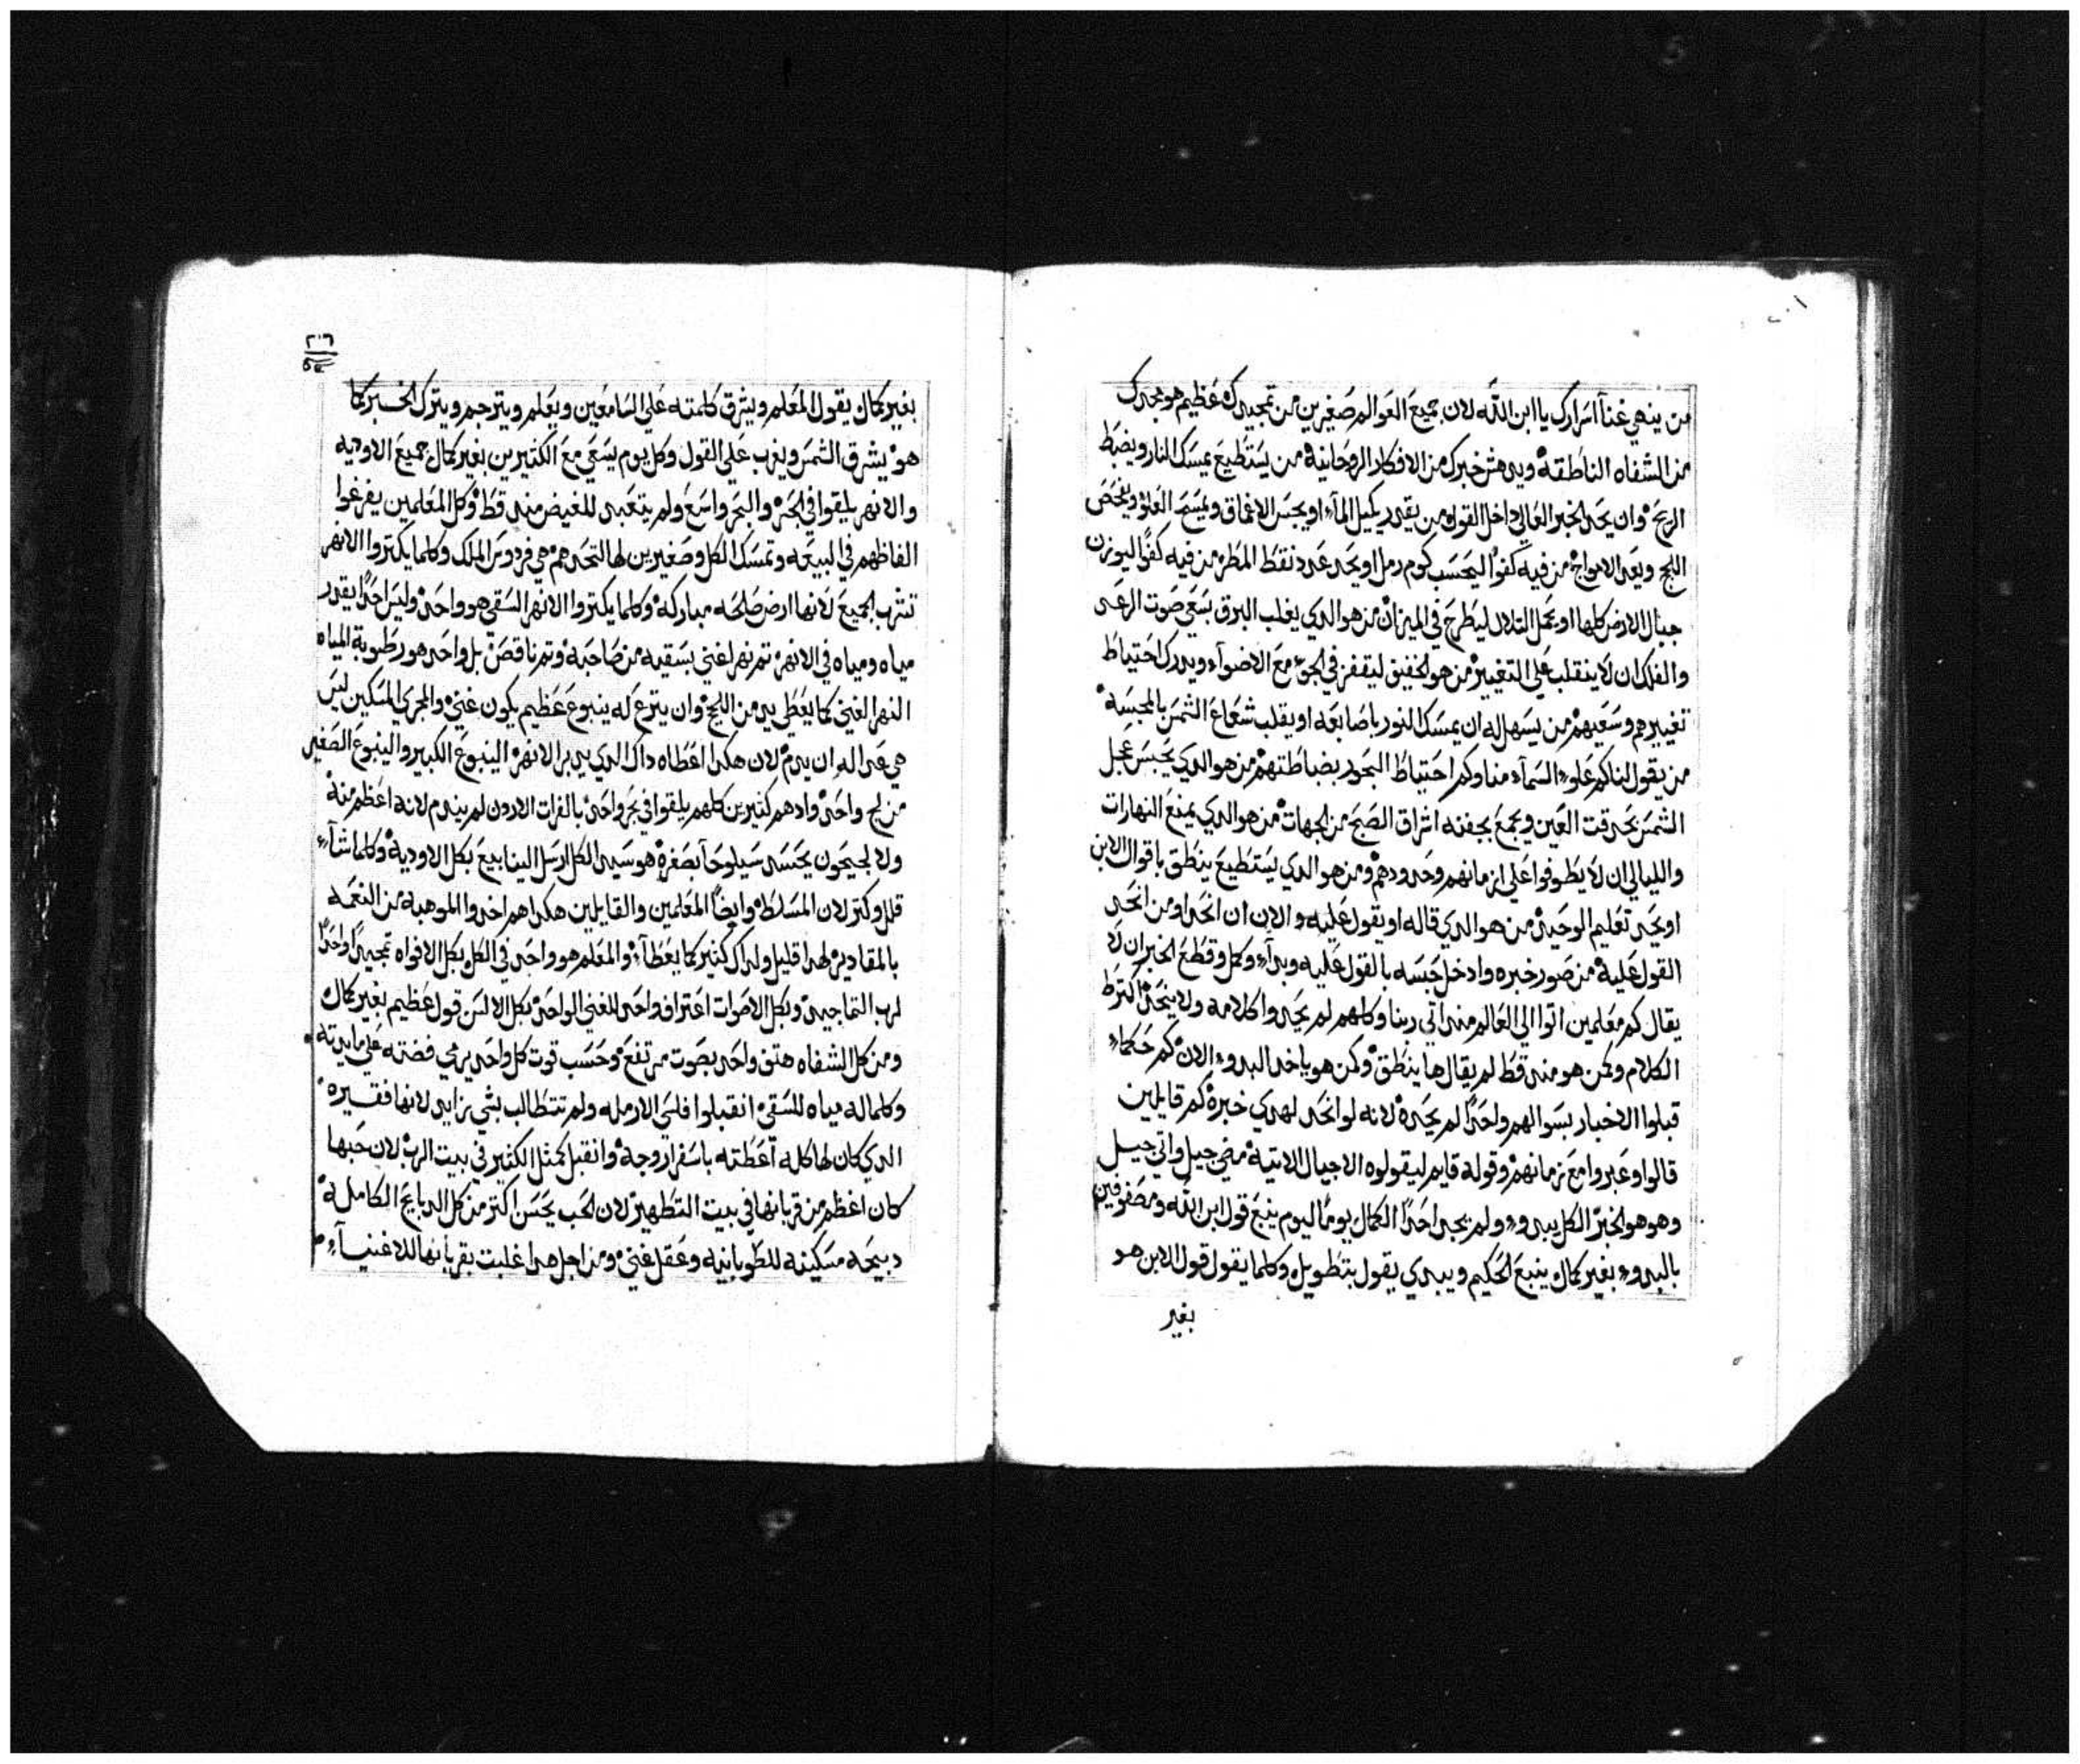 من ينهي عنآ اسرارك يا ابن الله لان جميع العوالم صغيرين من تمجيدك عظيم هو مجدك
من الشفاه الناطقه ويدهش خبرك من الافكار الروحانيه من يستطيع يمسك النار ويضبط
الريح وان يحد الخبر العالي داخل القول من يقدر يكيل المآء او يجس الاعماق ويمسح العلو ويفحص
اللج ويعد الامواج من فيه كفوًا ليحسب كوم رمل او يحد عدد نقط المطر من فيه كفوًا ليوزن
جبال الارض كلها او يحمل التلال ليطرح في الميزان من هو الدي يغلب البرق بسعي صوت الرعد
والفلك ان لا ينقلب علي التغيير من هو الخفيف ليقفز في الجو مع الاضوآء ويدرك احتياط
تغييرهم وسعيهم من يسهل له ان يمسك النور باصابعه او يقلب شعاع الشمس بالمجسه
من يقول لنا كم علو السمآء منا وكم احتياط البحور بضباطتهم من هو الدي يحبس عجل
الشمس بحدقت العين ويجمع بجفنه اشراق الصبح من الجهات من هو الدي يمنع النهارات
والليالي ان لا يطوفوا علي ازمانهم وحدودهم ومن هو الدي يستطيع ينطق باقوال الابن
او يحد تعليم الوحيد من هو الدي قاله او يقول عليه والان ان انحد او من انحد
القول عليه من صور خبره وادخل جسه بالقول عليه وبدآء وكمل وقطع الخبر ان لا
يقال كم معلمين اتوا الي العالم مند اتي ربنا وكلهم لم يحدوا كلامه ولا ينحد اكتر ط
الكلام ولمن هو مند قط لم يقال ها ينطق ولمن هو ياخد البدو الان كم حكمآء
قبلوا الاخبار بسوالهم واحدًا لم يحده لانه لو انحد لهدي خبره كم قايلين
قالوا وعبروا مع زمانهم وقوله قايم ليقولوه الاجيال الاتيه مضي جيل واتي جيل
وهو هو الخبر الكل يبدو ولم يجد احدًا الكمال يومًا اليوم ينبع قول ابن الله ومصفوفين
بالبدو بغير كمال ينبع الحكيم ويبدي يقول بتطويل وكلما يقول قول الابن هو
بغير
٢٠٦
بغير كمال يقول المعلم ويشرق كلمته علي السامعين ويعلم ويترجم ويترك الخبر كما
هو يشرق الشمس ويغرب علي القول وكل يوم يسعي مع الكتيرين بغير كمال جميع الاوديه
والانهر يلقوا في البحر والبحر واسع ولم يتعبى للغيض مند قط وكل المعلمين يفرغوا
الفاظهم في البيعه وتمسك الكل وصغيرين لها التحدهم هي فردوس الملك وكلما يكتروا الانهر
تشرب الجميع لانها ارض صلحه مباركه وكلما يكتروا الانهر السقي هو واحد وليس احدًا يقدر
مياه ومياه في الانهر تم نهر لغني بسقيه من صاحبه وتم ناقص بل واحد هو رطوبة المياه
النهر الغني كما يعطى يدي من اللج وان يترع له ينبوع عظيم يكون غني والمجري المسكين ليس
هي عداله ان يدم لان هكدا اعطاه داك الدي يدبر الانهر الينبوع الكبير والينبوع الصغير
من لج واحد وادهم كتيرين كلهم يلقوا في بحر واحد بالفرات الاردن لم يندم لانه اعظم منه
ولا لجيحون يحسد سيلوحآ بصغره هو سيد الكل ارسل الينابيع بكل الاوديه وكلما شآء
قلل وكتر لان المسلط وايضًا المعلمين والقايلين هكدا هم اخدوا الموهبه من النعمه
بالمقادير لهدا قليل ولداك كتير كما يعطآء والمعلم هو واحد في الكل بكل الافواه تمجيدًا واحدًا
لرب التماجيد وبكل الاصوات اعتراف واحد للغني الواحد بكل الالسن قول عظيم بغير كمال
ومن كل الشفاه هتف واحد بصوت مرتفع وحسب قوت كل واحد يرمي فضته علي مايدته
وكلما له مياه للسقي انقبلوا فلسي الارمله ولم تتطالب بشي زايد لانها فقيره
الدي كان لها كله اعطته باسفرار وجه وانقبل كمثل الكثير في بيت الرب لان حبها
كان اعظم من قربانها في بيت التطهير لان الحب يحسن اكتر من كل الدبايح الكامله
دبيحه مسكينه للطوبانيه وعقل غني ومن اجل هدا غلبت بقربانها للاغنيآء